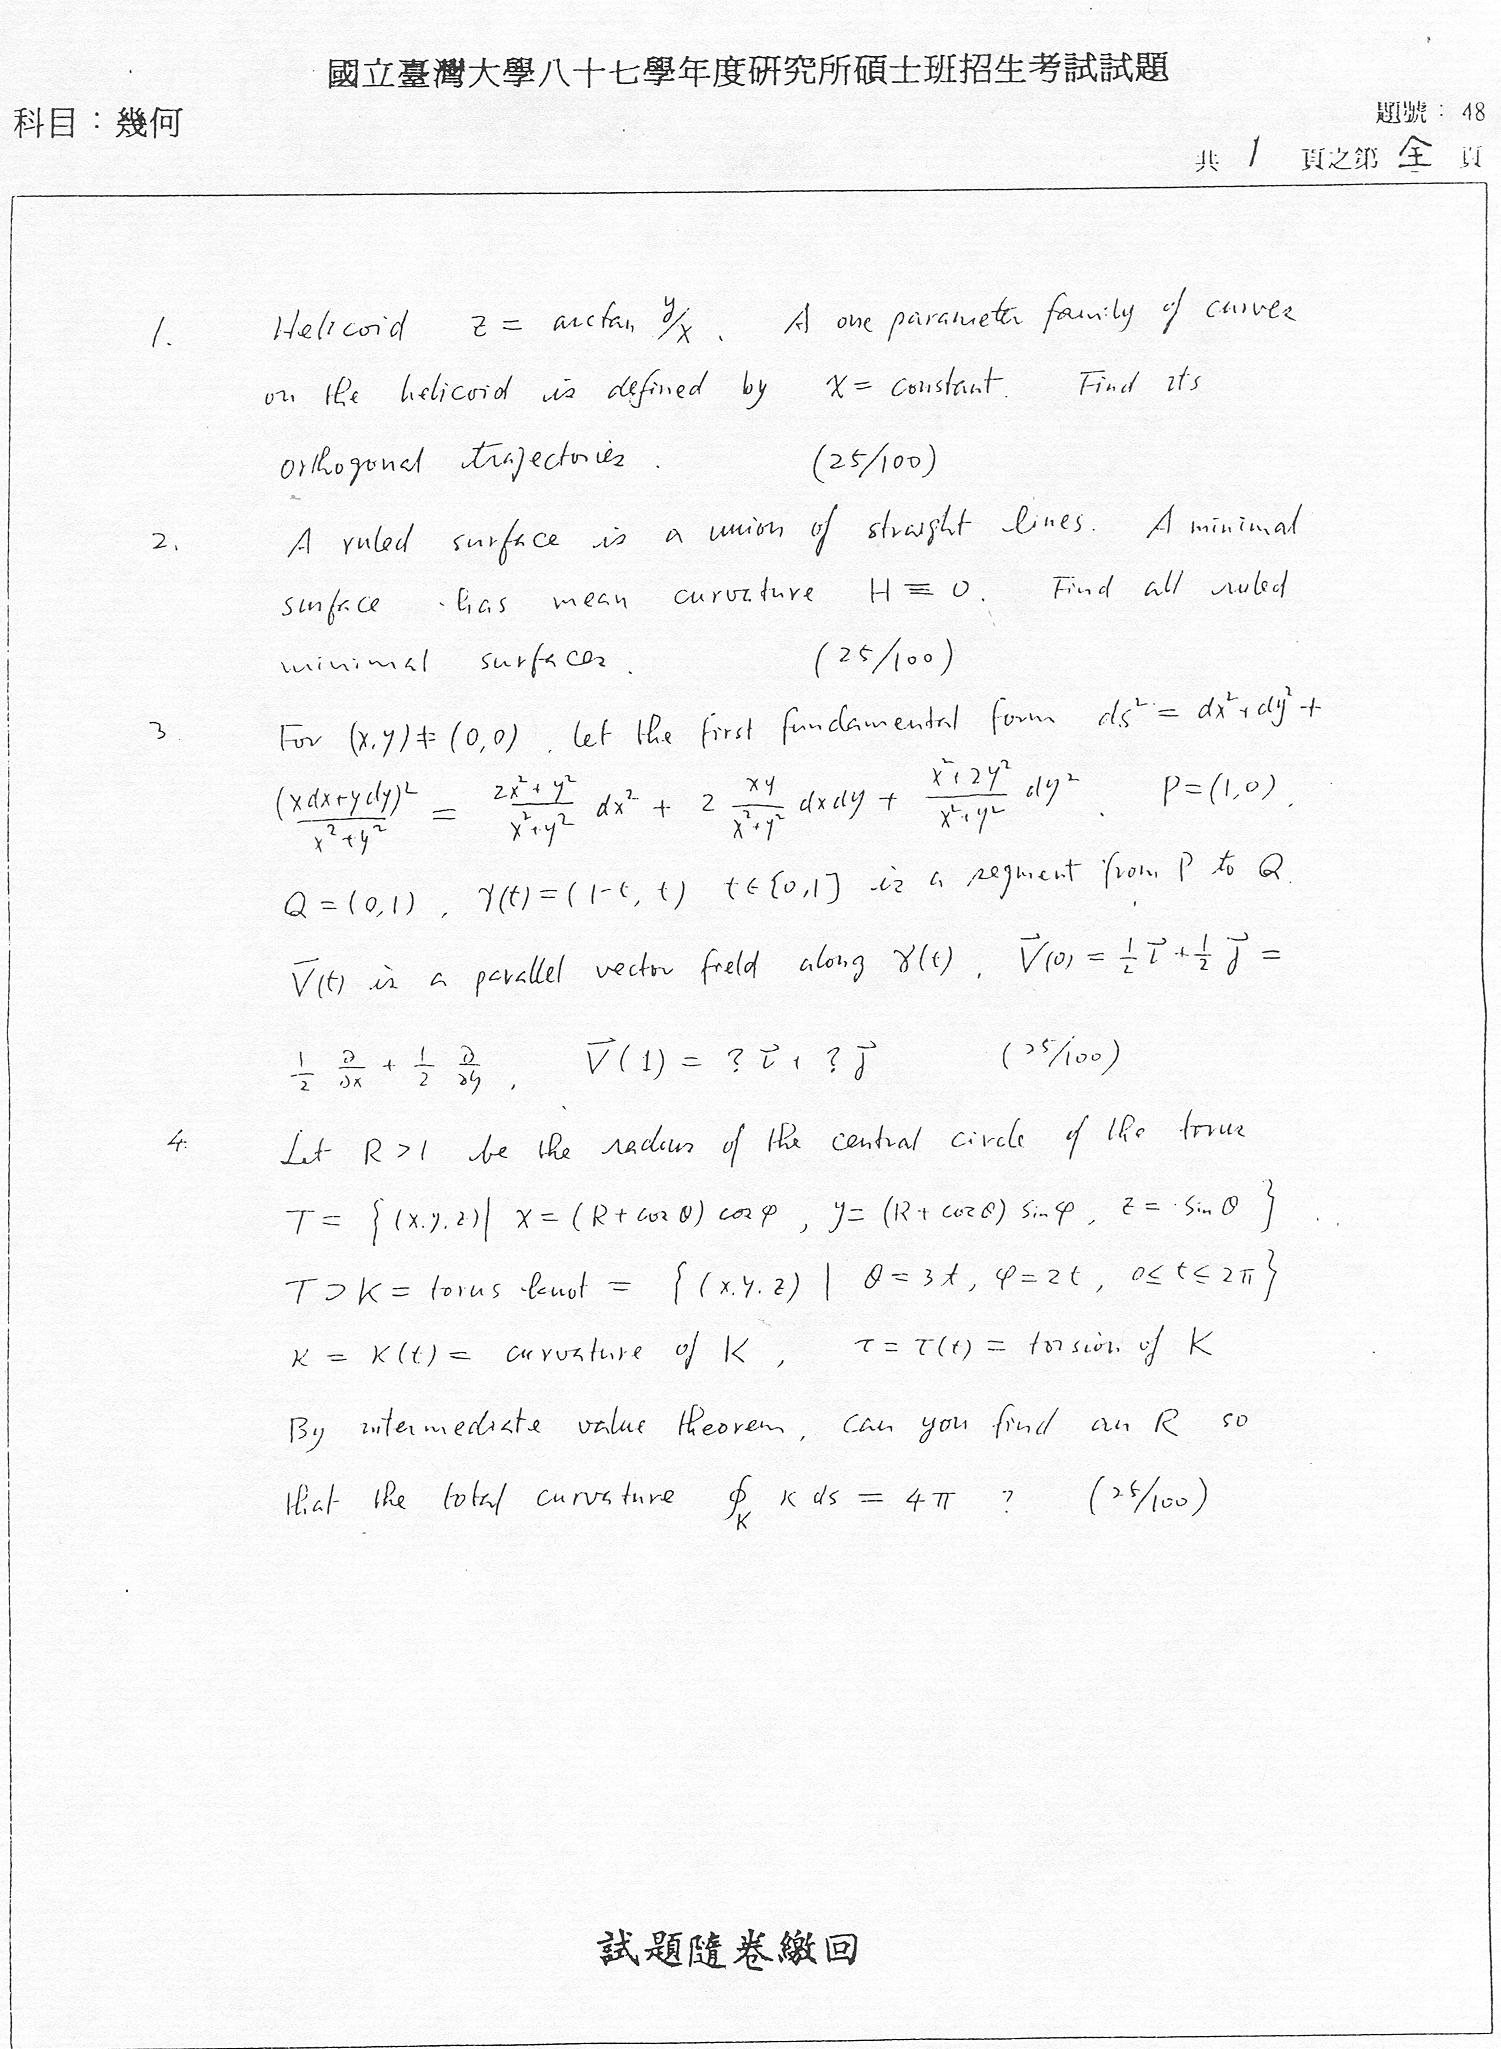 國立臺灣大學八十七學年度研究所碩士班招生考試試題
科目：幾何
題號：48
共 1 頁之第 全 頁
1. Helicoid z = arctan y/x. A one parameter family of curves
on the helicoid is defined by x = constant. Find its
orthogonal trajectories. (25/100)
2. A ruled surface is a union of straight lines. A minimal
surface has mean curvature H ≡ 0. Find all ruled
minimal surfaces. (25/100)
3. For (x,y) ≠ (0,0), let the first fundamental form ds² = dx² + dy² +
(xdx+ydy)²/(x²+y²) = (2x²+y²)/(x²+y²) dx² + 2 xy/(x²+y²) dxdy + (x²+2y²)/(x²+y²) dy². P=(1,0),
Q=(0,1), γ(t)=(1-t, t) t∈[0,1] is a segment from P to Q.
V⃗(t) is a parallel vector field along γ(t), V⃗(0) = 1/2 i⃗ + 1/2 j⃗ =
1/2 ∂/∂x + 1/2 ∂/∂y, V⃗(1) = ? i⃗ + ? j⃗ (25/100)
4. Let R>1 be the radius of the central circle of the torus
T = {(x,y,z)| x=(R+cosθ)cosφ, y=(R+cosθ)sinφ, z=sinθ}
T⊃K = torus knot = {(x,y,z) | θ=3t, φ=2t, 0≤t≤2π}
κ = κ(t) = curvature of K, τ=τ(t) = torsion of K
By intermediate value theorem, can you find an R so
that the total curvature ∮_K κ ds = 4π ? (25/100)
試題隨卷繳回